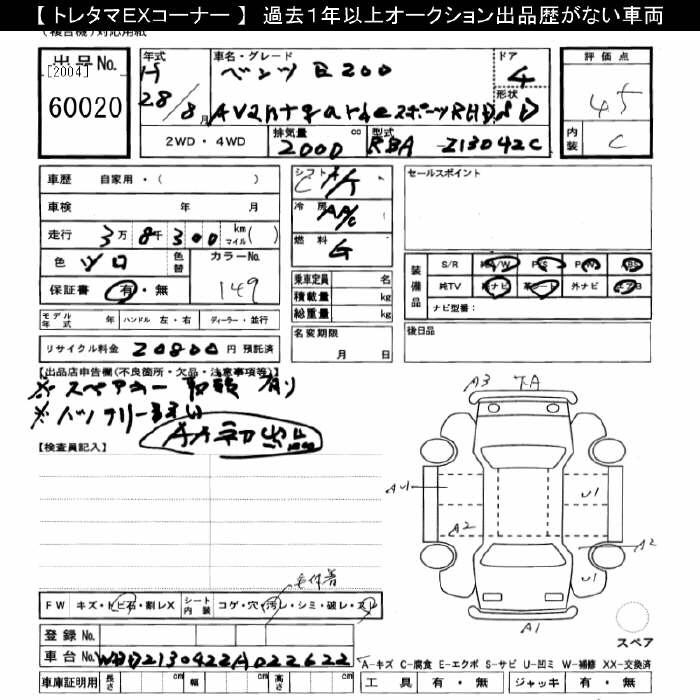 【 トレタマEXコーナー 】 過去1年以上オークション出品歴がない車両
(複合機)対応用紙
出品No. 年式 車名・グレード ドア 評価点
[2004] H ベンツ E200 4 4.5
60020 28/8月 Avantgardeスポーツ RHD 形状
2WD・4WD 排気量 2000 cc 型式 RBA 213042C 内装 C
車歴 自家用・( ) シフト セールスポイント
車検 年 月 冷房 A/C
走行 3万8千300 km マイル( ) 燃料 G
色 シロ 色替 カラーNo. 149 乗車定員 名
保証書 有・無 積載量 kg
総重量 kg
装備品 S/R 純A/W P/S P/W ABS
純TV 純ナビ 革シート 外ナビ
ナビ型番:
モデル年式 年 ハンドル 左・右 ディーラー・並行 名変期限 後日品
リサイクル料金 20800 円 預託済 月 日
【出品店申告欄(不良箇所・欠品・注意事項等)】
※スペアキー 取説 有り
※バッテリー
AA初出品
【検査員記入】
A3
A1
U1
A2
A2
U1
A1
スペア
FW キズ・トビ石・割レX シート内装 コゲ・穴・汚レ・シミ・破レ・スレ
登録No.
車台No. WDD2130422A022622
A-キズ C-腐食 E-エクボ S-サビ U-凹ミ W-補修 XX-交換済
車庫証明用 長さ cm 幅 cm 高さ cm 工具 有・無 ジャッキ 有・無